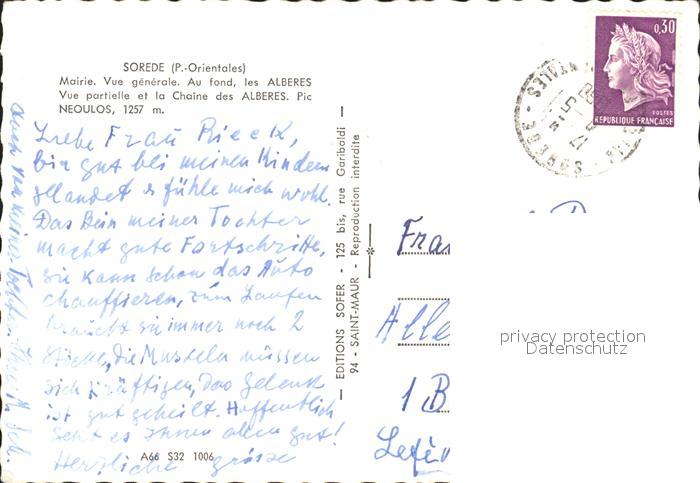 SOREDE (P.-Orientales)
Mairie. Vue générale. Au fond, les ALBERES
Vue partielle et la Chaine des ALBERES. Pic
NEOULOS, 1257 m.
Liebe Frau Rieck,
bin gut bei meinen Kindern
gelandet & fühle mich wohl.
Das Bein meiner Tochter
macht gute Fortschritte,
sie kann schon das Auto
chauffieren, zum Laufen
braucht sie immer noch 2
Stöcke, die Muskeln müssen
sich kräftigen, das Gelenk
ist gut geheilt. Hoffentlich
geht es Ihnen allen gut!
Herzliche grüsse
auch von meiner Tochter
A66 S32 1006
— EDITIONS SOFER - 125 bis, rue Garibaldi —
94 - SAINT-MAUR - Reproduction interdite
0,30
POSTES
REPUBLIQUE FRANÇAISE
SOREDE
Frau
Alle
1 B
privacy protection
Datenschutz